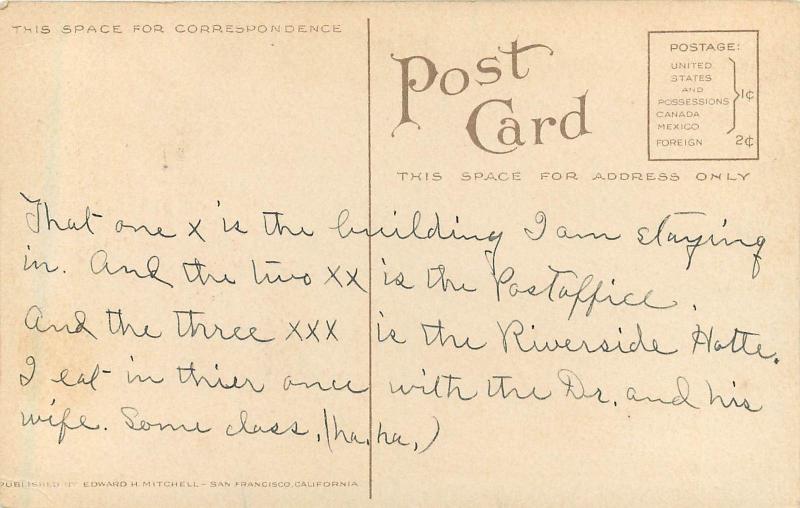 THIS SPACE FOR CORRESPONDENCE
Post
Card
POSTAGE:
UNITED
STATES
AND
POSSESSIONS
CANADA
MEXICO
1¢
FOREIGN 2¢
THIS SPACE FOR ADDRESS ONLY
That one x is the building I am staying
in. And the two xx is the Postoffice.
And the three xxx is the Riverside Hotte.
I eat in thier once with the Dr. and his
wife. Some class, (ha, ha,)
PUBLISHED BY EDWARD H. MITCHELL – SAN FRANCISCO, CALIFORNIA